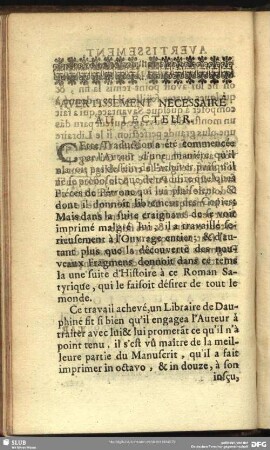 AVERTISSEMENT NECESSAIRE
AU LECTEUR.
CEtte Traduction a été commencée
par l'Auteur d'une maniere qu'il
Piéces de Petrone qui lui plaisoient, &
dont il donnoit librement des Copies.
Mais dans la suite craignant de se voir
imprimé malgré lui, il a travaillé se-
rieusement à l'Ouvrage entier; & d'au-
tant plus que la découverte des nou-
veaux Fragmens donnoit dans ce tems
la une suite d'Histoire à ce Roman Sa-
tyrique, qui le faisoit désirer de tout le
monde.
Ce travail achevé, un Libraire de Dau-
phiné fit si bien qu'il engagea l'Auteur à
traiter avec lui & lui prometât ce qu'il n'à
point tenu, il s'est vû maître de la meil-
leure partie du Manuscrit, qu'il a fait
imprimer in octavo, & in douze, à son
insçu,
SLUB
DFG